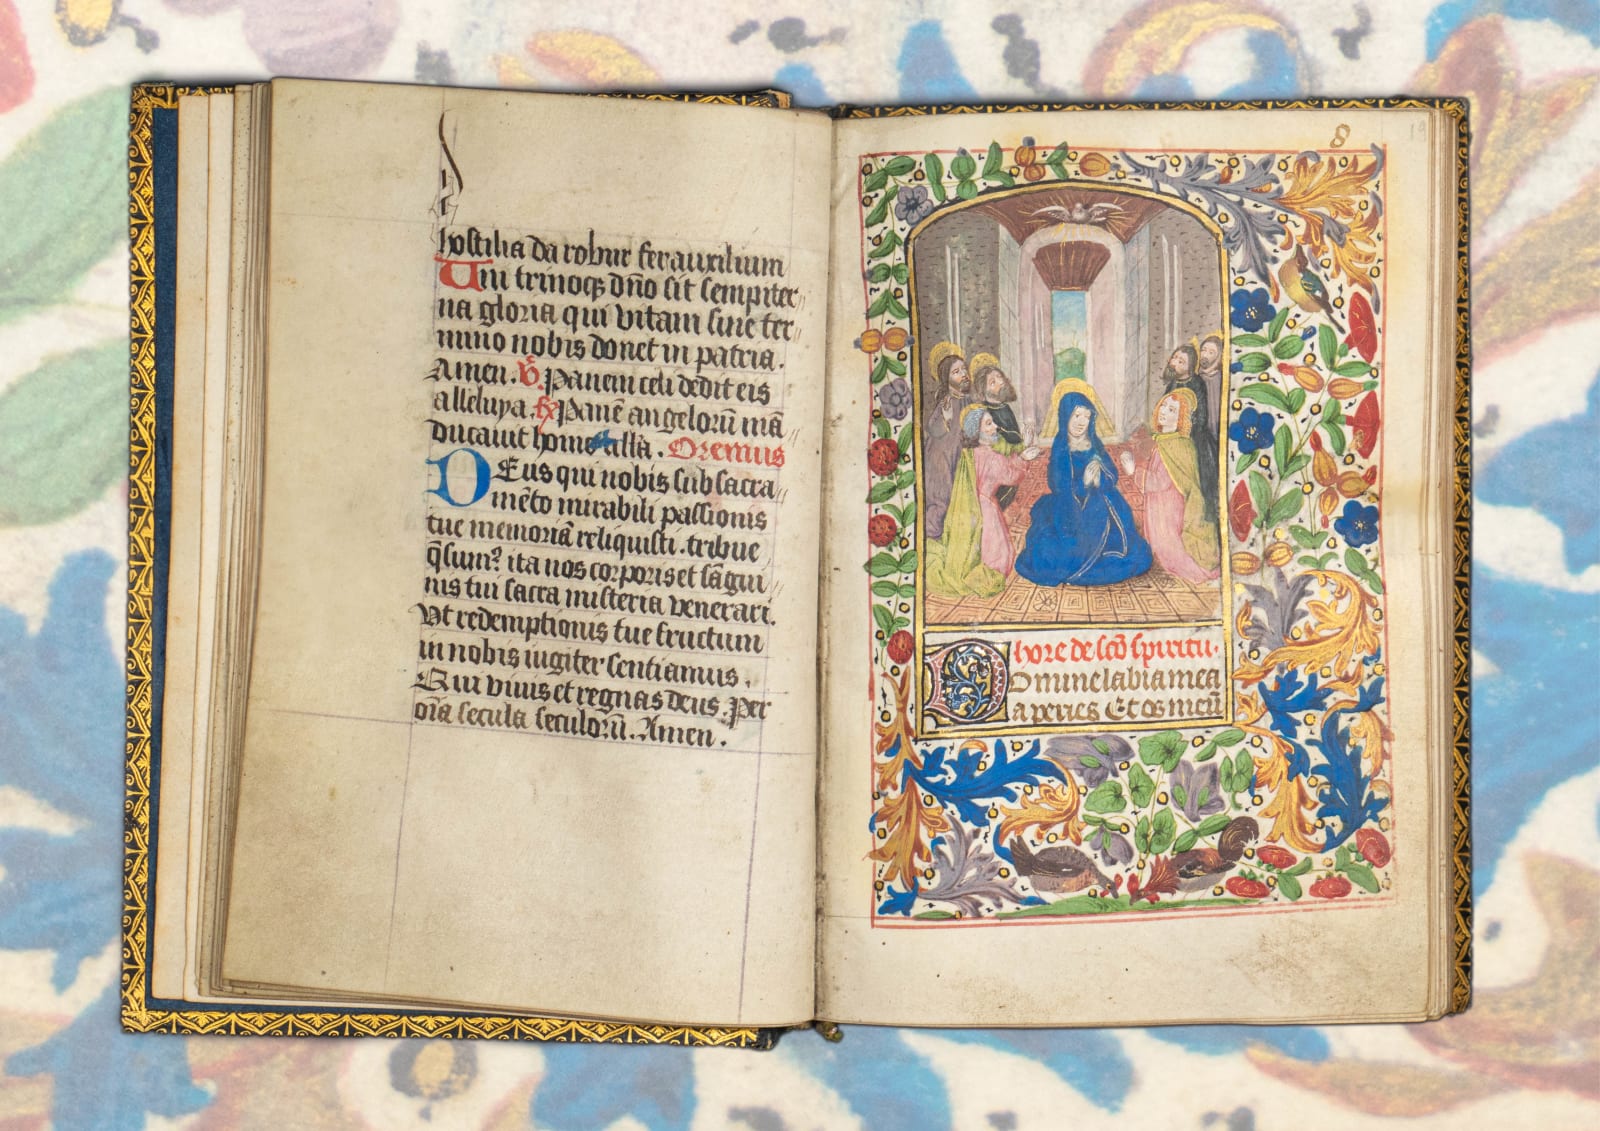 hostilia da robur fer auxilium
Uni trinoq; dño sit sempiter
na gloria qui vitam sine ter
mino nobis donet in patria.
Amen. V̊ Panem celi dedit eis
alleluya. R̷ Panē angelorū mā
ducauit homo alla. Oremus
DEus qui nobis sub sacra
mēto mirabili passionis
tue memoriā reliquisti. tribue
q̄sum⁹ ita nos corporis et sāgui
nis tui sacra misteria venerari.
Vt redemptionis tue fructum
in nobis iugiter sentiamus.
Qui viuis et regnas deus. Per
oīa secula seculorū. Amen.
8
19
hore de scō spiritu.
Domine labia mea
aperies Et os meū